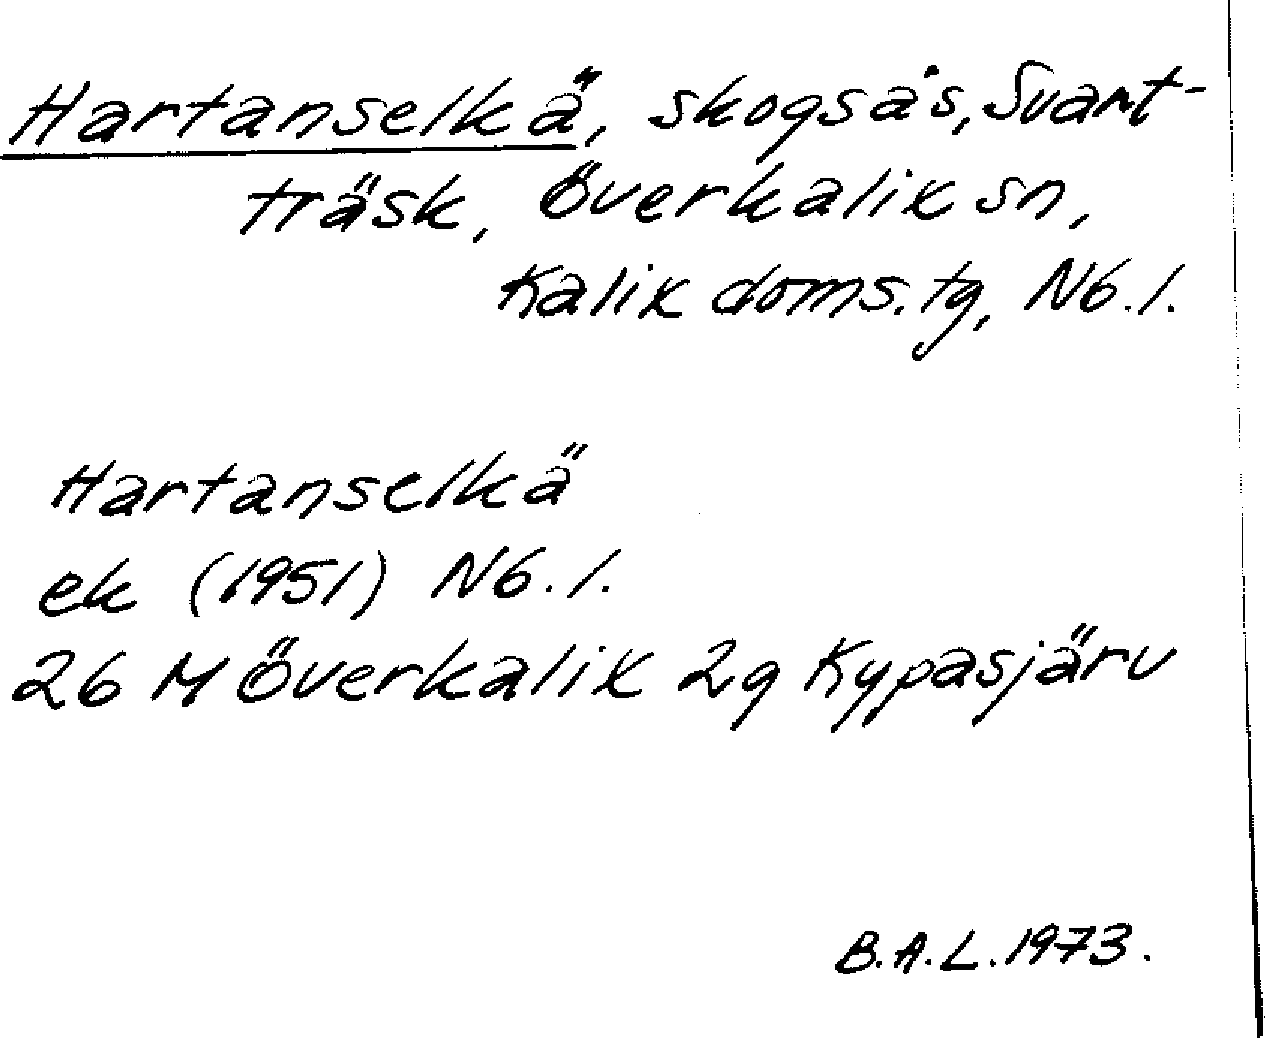 Hartanselkä, skogsås, Svart-
träsk, Överkalix sn,
Kalix doms. tg, Nb. l.
Hartanselkä
ek (1951) Nb. l.
26 M Överkalix 2g Kypasjärv
B.A.L. 1973.